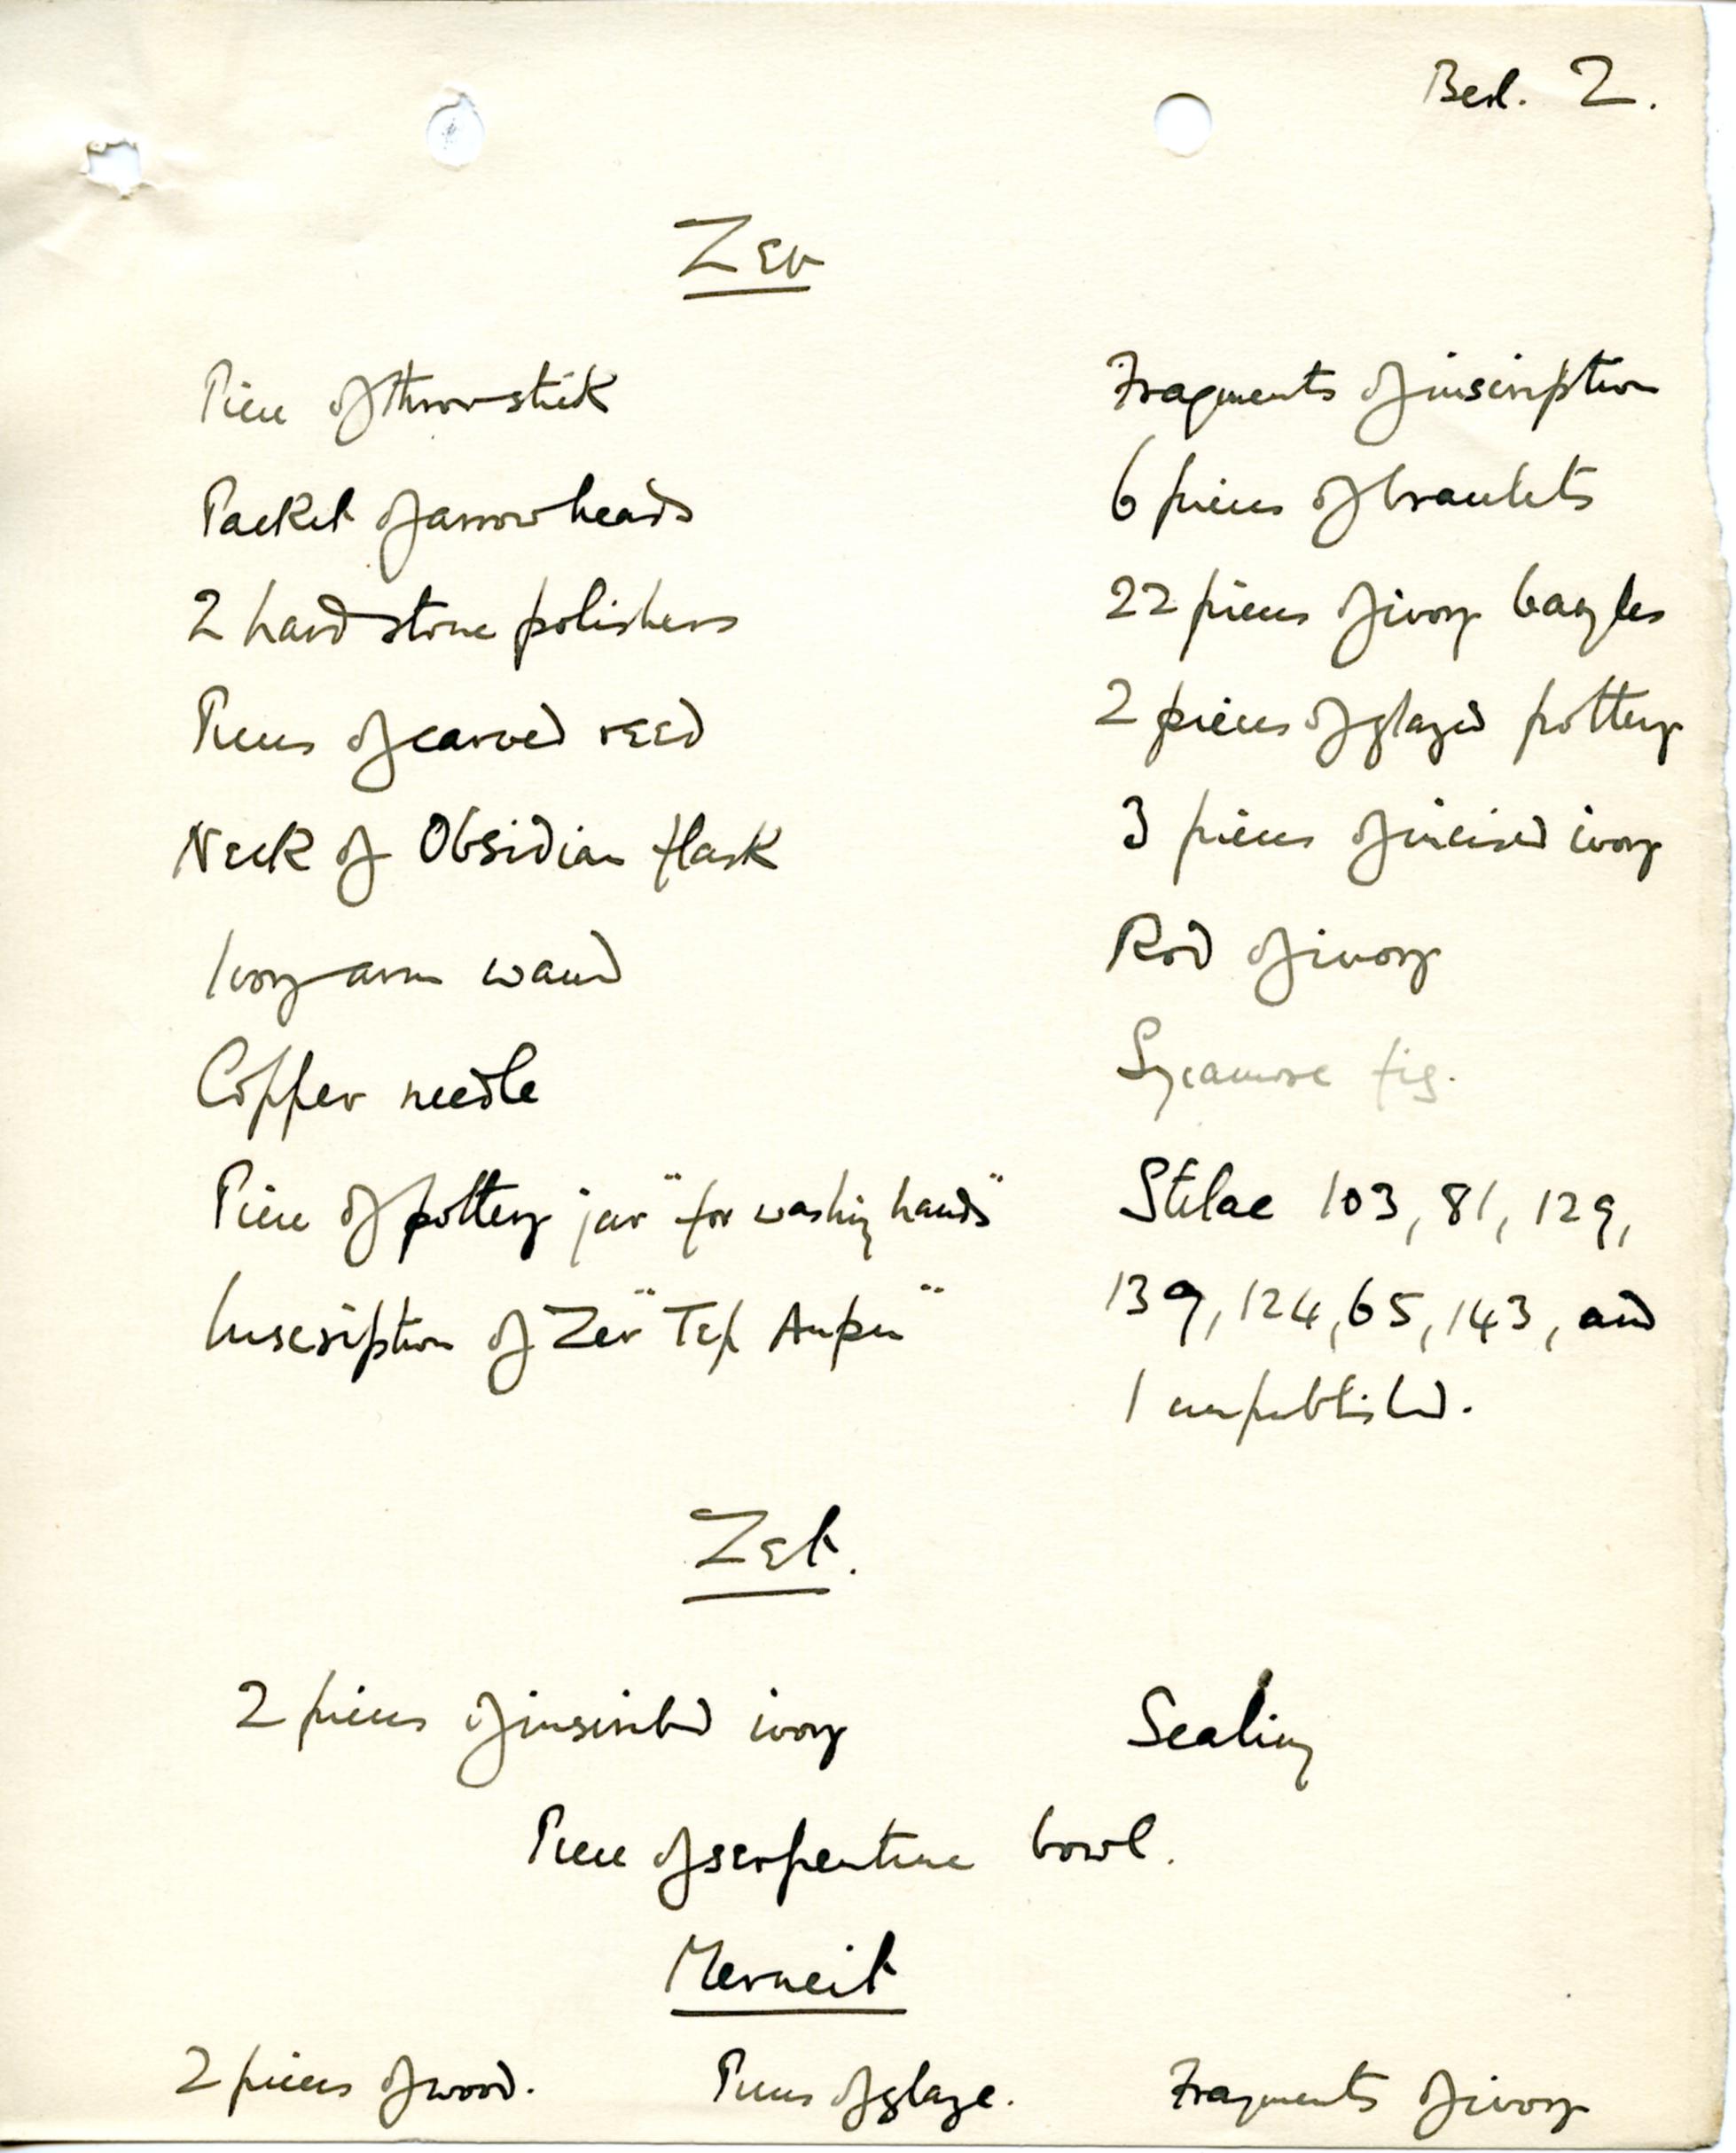 Berl. 2.
Zer
Piece of throwstick
Packet of arrowheads
2 hard stone polishers
Pieces of carved reed
Neck of Obsidian flask
Ivory arm wand
Copper needle
Piece of pottery jar "for washing hands"
Inscription of Zer "Tep Anpu"
Fragments of inscription
6 pieces of bracelets
22 pieces of ivory bagles
2 pieces of glazed pottery
3 pieces of incised ivory
Rod of ivory
Sycamore fig.
Stelae 103, 81, 129,
139, 124, 65, 143, and
1 unpublished.
Zet.
2 pieces of inscribed ivory Sealing
Piece of serpentine bowl.
Merneit
2 pieces of wood. Pieces of glaze. Fragments of ivory